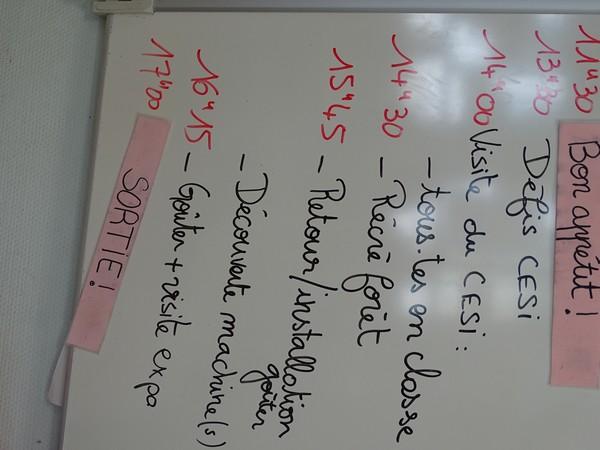 11"30 Bon appétit !
13"30 Défis CESI
14"00 Visite du CESI :
- tous.tes en classe
14"30 - Récré forêt
15"45 - Retour/installation
goûter
- Découverte machine(s)
16"15 - Goûter + visite expo
17"00 SORTIE !